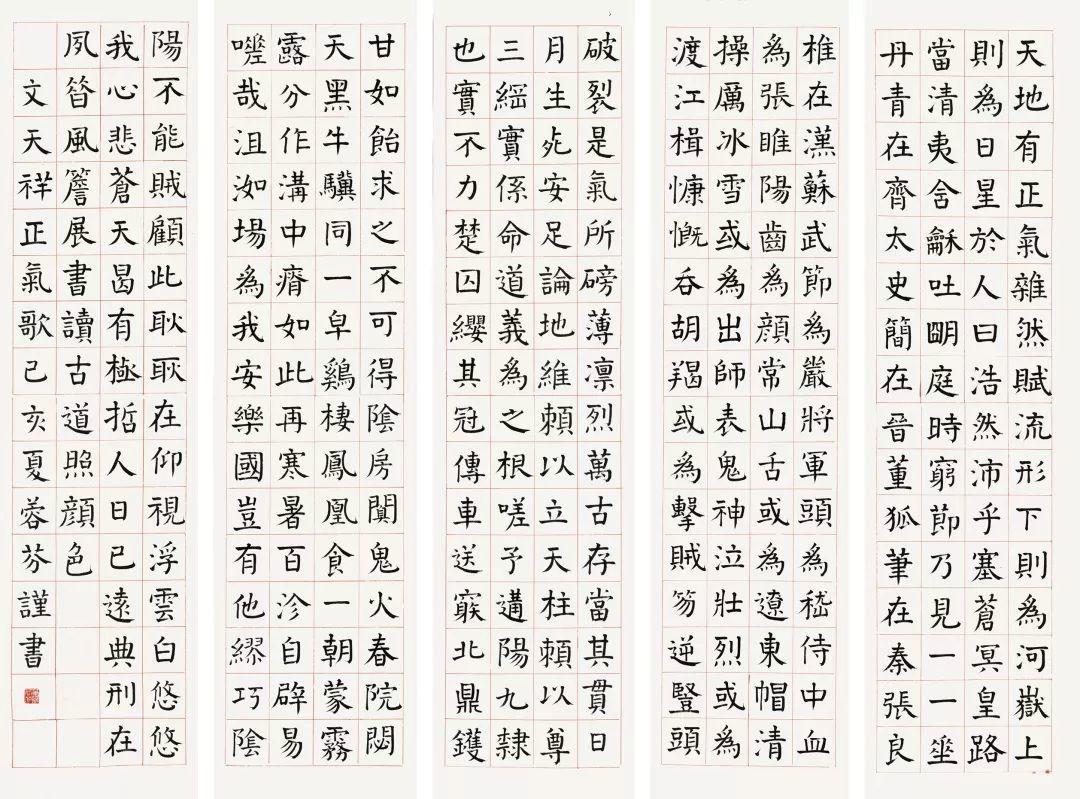 天地有正氣雜然賦流形下則為河嶽上
則為日星於人曰浩然沛乎塞蒼冥皇路
當清夷含龢吐朙庭時窮節乃見一一垂
丹青在齊太史簡在晉董狐筆在秦張良
椎在漢蘇武節為嚴將軍頭為嵇侍中血
為張睢陽齒為顏常山舌或為遼東帽清
操厲冰雪或為出師表鬼神泣壯烈或為
渡江楫慷慨吞胡羯或為擊賊笏逆豎頭
破裂是氣所磅薄凛烈萬古存當其貫日
月生死安足論地維賴以立天柱賴以尊
三綱實係命道義為之根嗟予遘陽九隸
也實不力楚囚纓其冠傳車送窮北鼎鑊
甘如飴求之不可得陰房闃鬼火春院閟
天黑牛驥同一皁鷄棲鳳凰食一朝蒙霧
露分作溝中瘠如此再寒暑百沴自辟易
嗟哉沮洳場為我安樂國豈有他繆巧陰
陽不能賊顧此耿耿在仰視浮雲白悠悠
我心悲蒼天曷有極哲人日已遠典刑在
夙昔風簷展書讀古道照顏色
文天祥正氣歌己亥夏蓉芬謹書